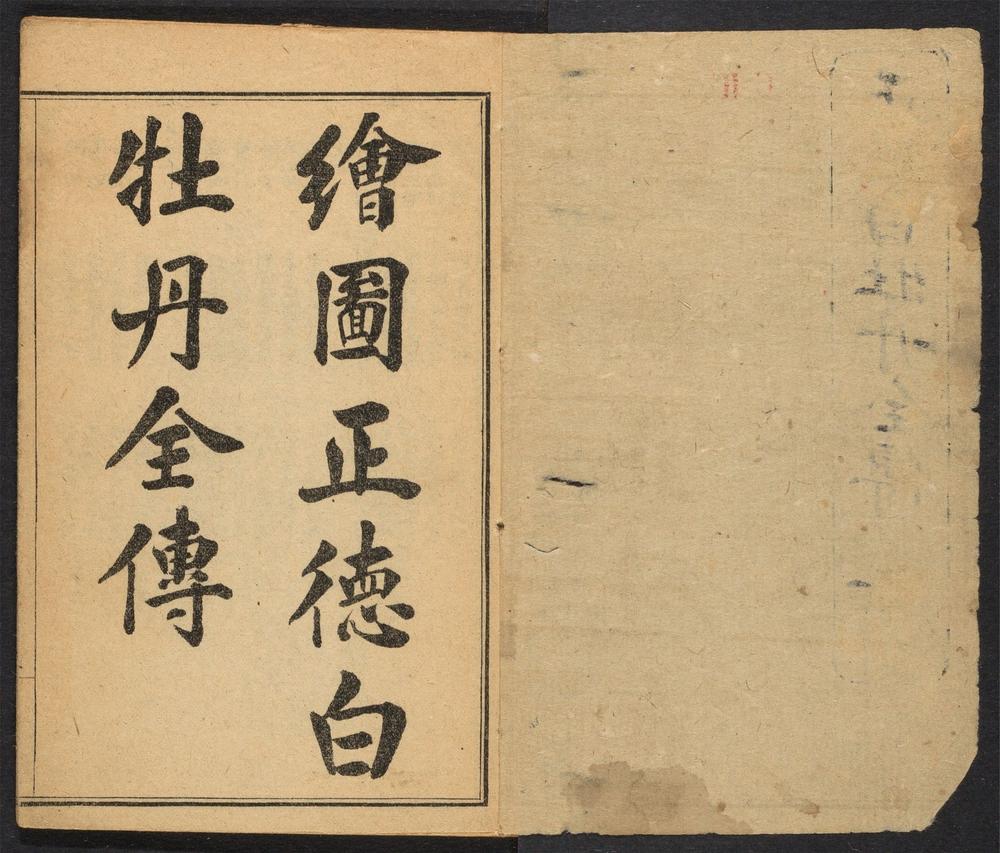 繪圖正德白
牡丹全傳